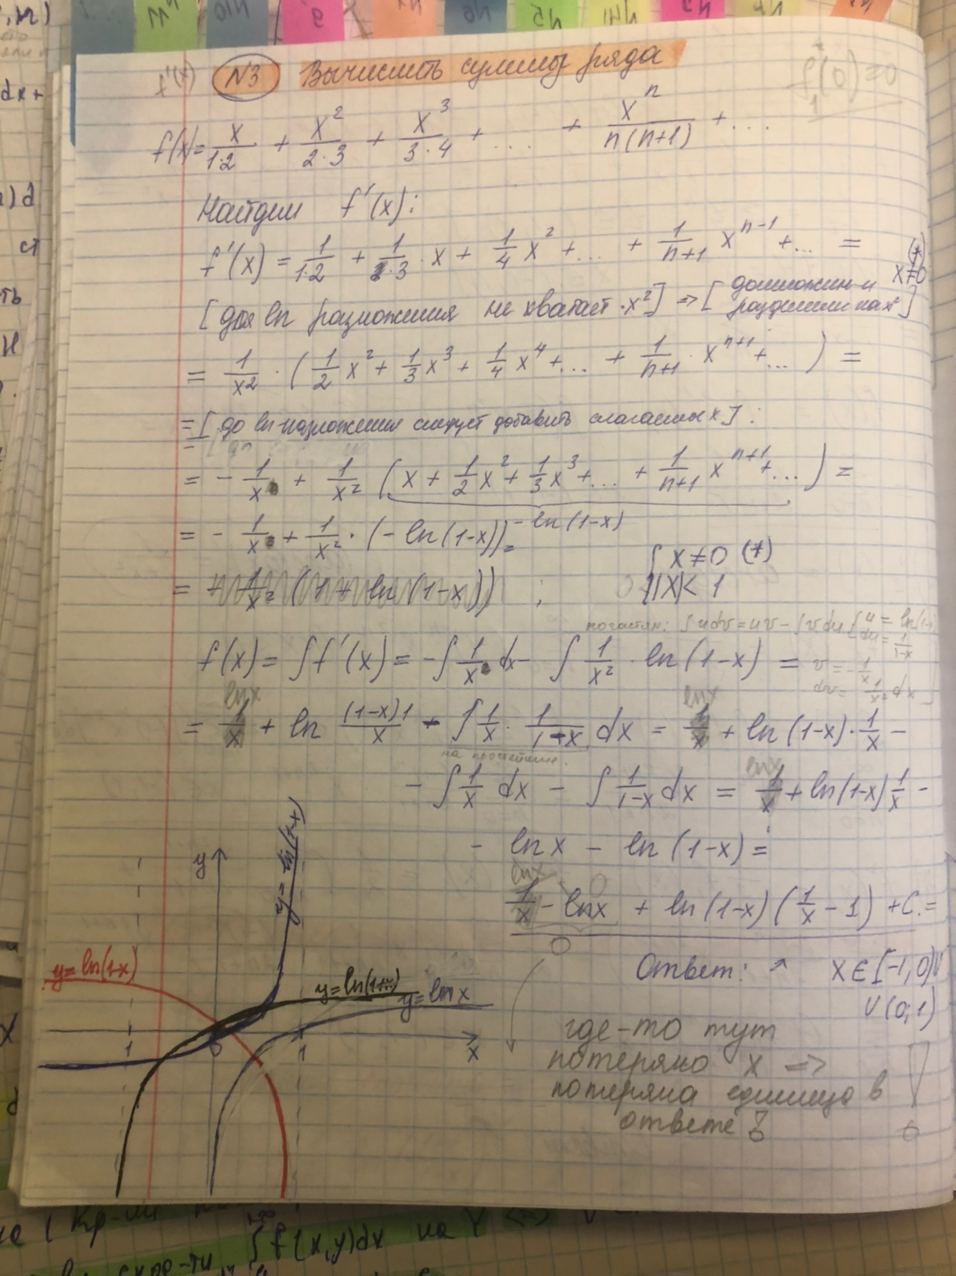 N3 Вычислить сумму ряда
f(x) = x/(1·2) + x²/(2·3) + x³/(3·4) + .... + xⁿ/(n(n+1)) + ...
Найдем f'(x):
f'(x) = 1/(1·2) + 1/(2·3) · x + 1/4 x² + ... + 1/(n+1) xⁿ⁻¹ + ... = (*) x≠0
[для ln разложения не хватает ·x²] => [домножим и разделим на x²]
= 1/x² · (1/2 x² + 1/3 x³ + 1/4 x⁴ + ... + 1/(n+1) · xⁿ⁺¹ + ...) =
= [до ln-разложения следует добавить слагаемых x] :
= - 1/x + 1/x² (x + 1/2 x² + 1/3 x³ + ... + 1/(n+1) xⁿ⁺¹ + ...) =
-ln(1-x)
= - 1/x + 1/x² · (-ln(1-x)) =
{ x≠0 (*)
|x| < 1
по частям: ∫udv = uv - ∫vdu
f(x) = ∫f'(x) = -∫ 1/x dx - ∫ 1/x² · ln(1-x) =
= 1/x + ln (1-x) 1/x - ∫ 1/x · 1/(1-x) dx = 1/x + ln(1-x) · 1/x -
на простейшие.
- ∫ 1/x dx - ∫ 1/(1-x) dx = 1/x + ln(1-x) 1/x -
- ln x - ln(1-x) =
1/x - ln x + ln(1-x) (1/x - 1) + C. =
Ответ: ↗ x ∈ [-1, 0) ∪
∪ (0; 1)
где-то тут
потеряно x =>
потеряна единица в
ответе !
y
y = ln(1-x)
y = ln(1+x)
y = ln x
1
0
1
x